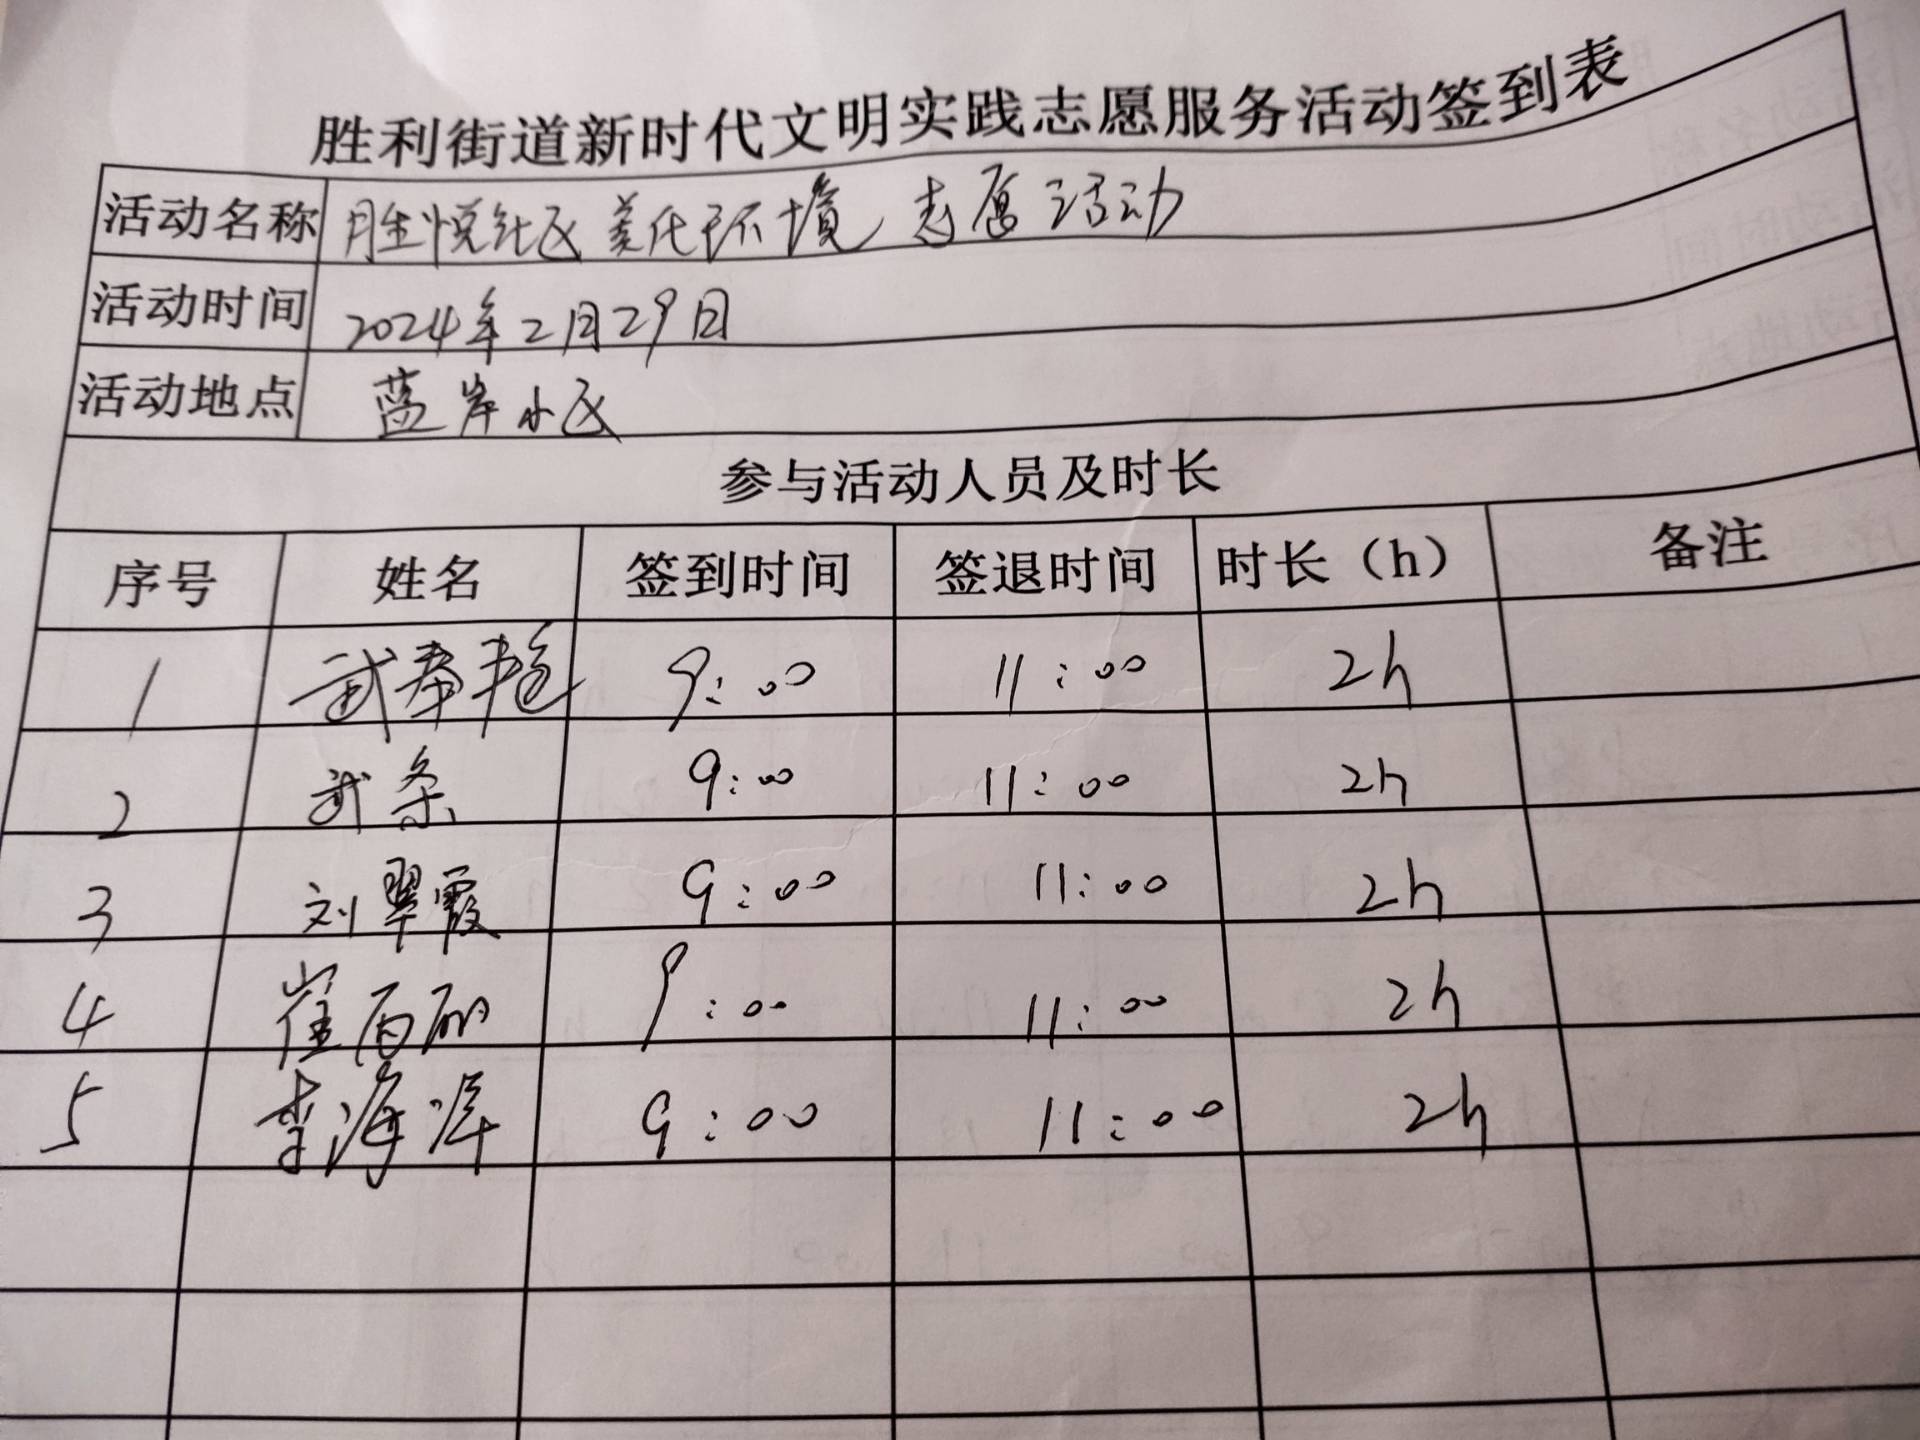 胜利街道新时代文明实践志愿服务活动签到表
活动名称 胜悦社区美化环境志愿活动
活动时间 2024年2月29日
活动地点 蓝岸小区
参与活动人员及时长
序号 姓名 签到时间 签退时间 时长（h） 备注
1 武春艳 9:00 11:00 2h
2 武条 9:00 11:00 2h
3 刘翠霞 9:00 11:00 2h
4 崔丙丽 9:00 11:00 2h
5 李海洋 9:00 11:00 2h